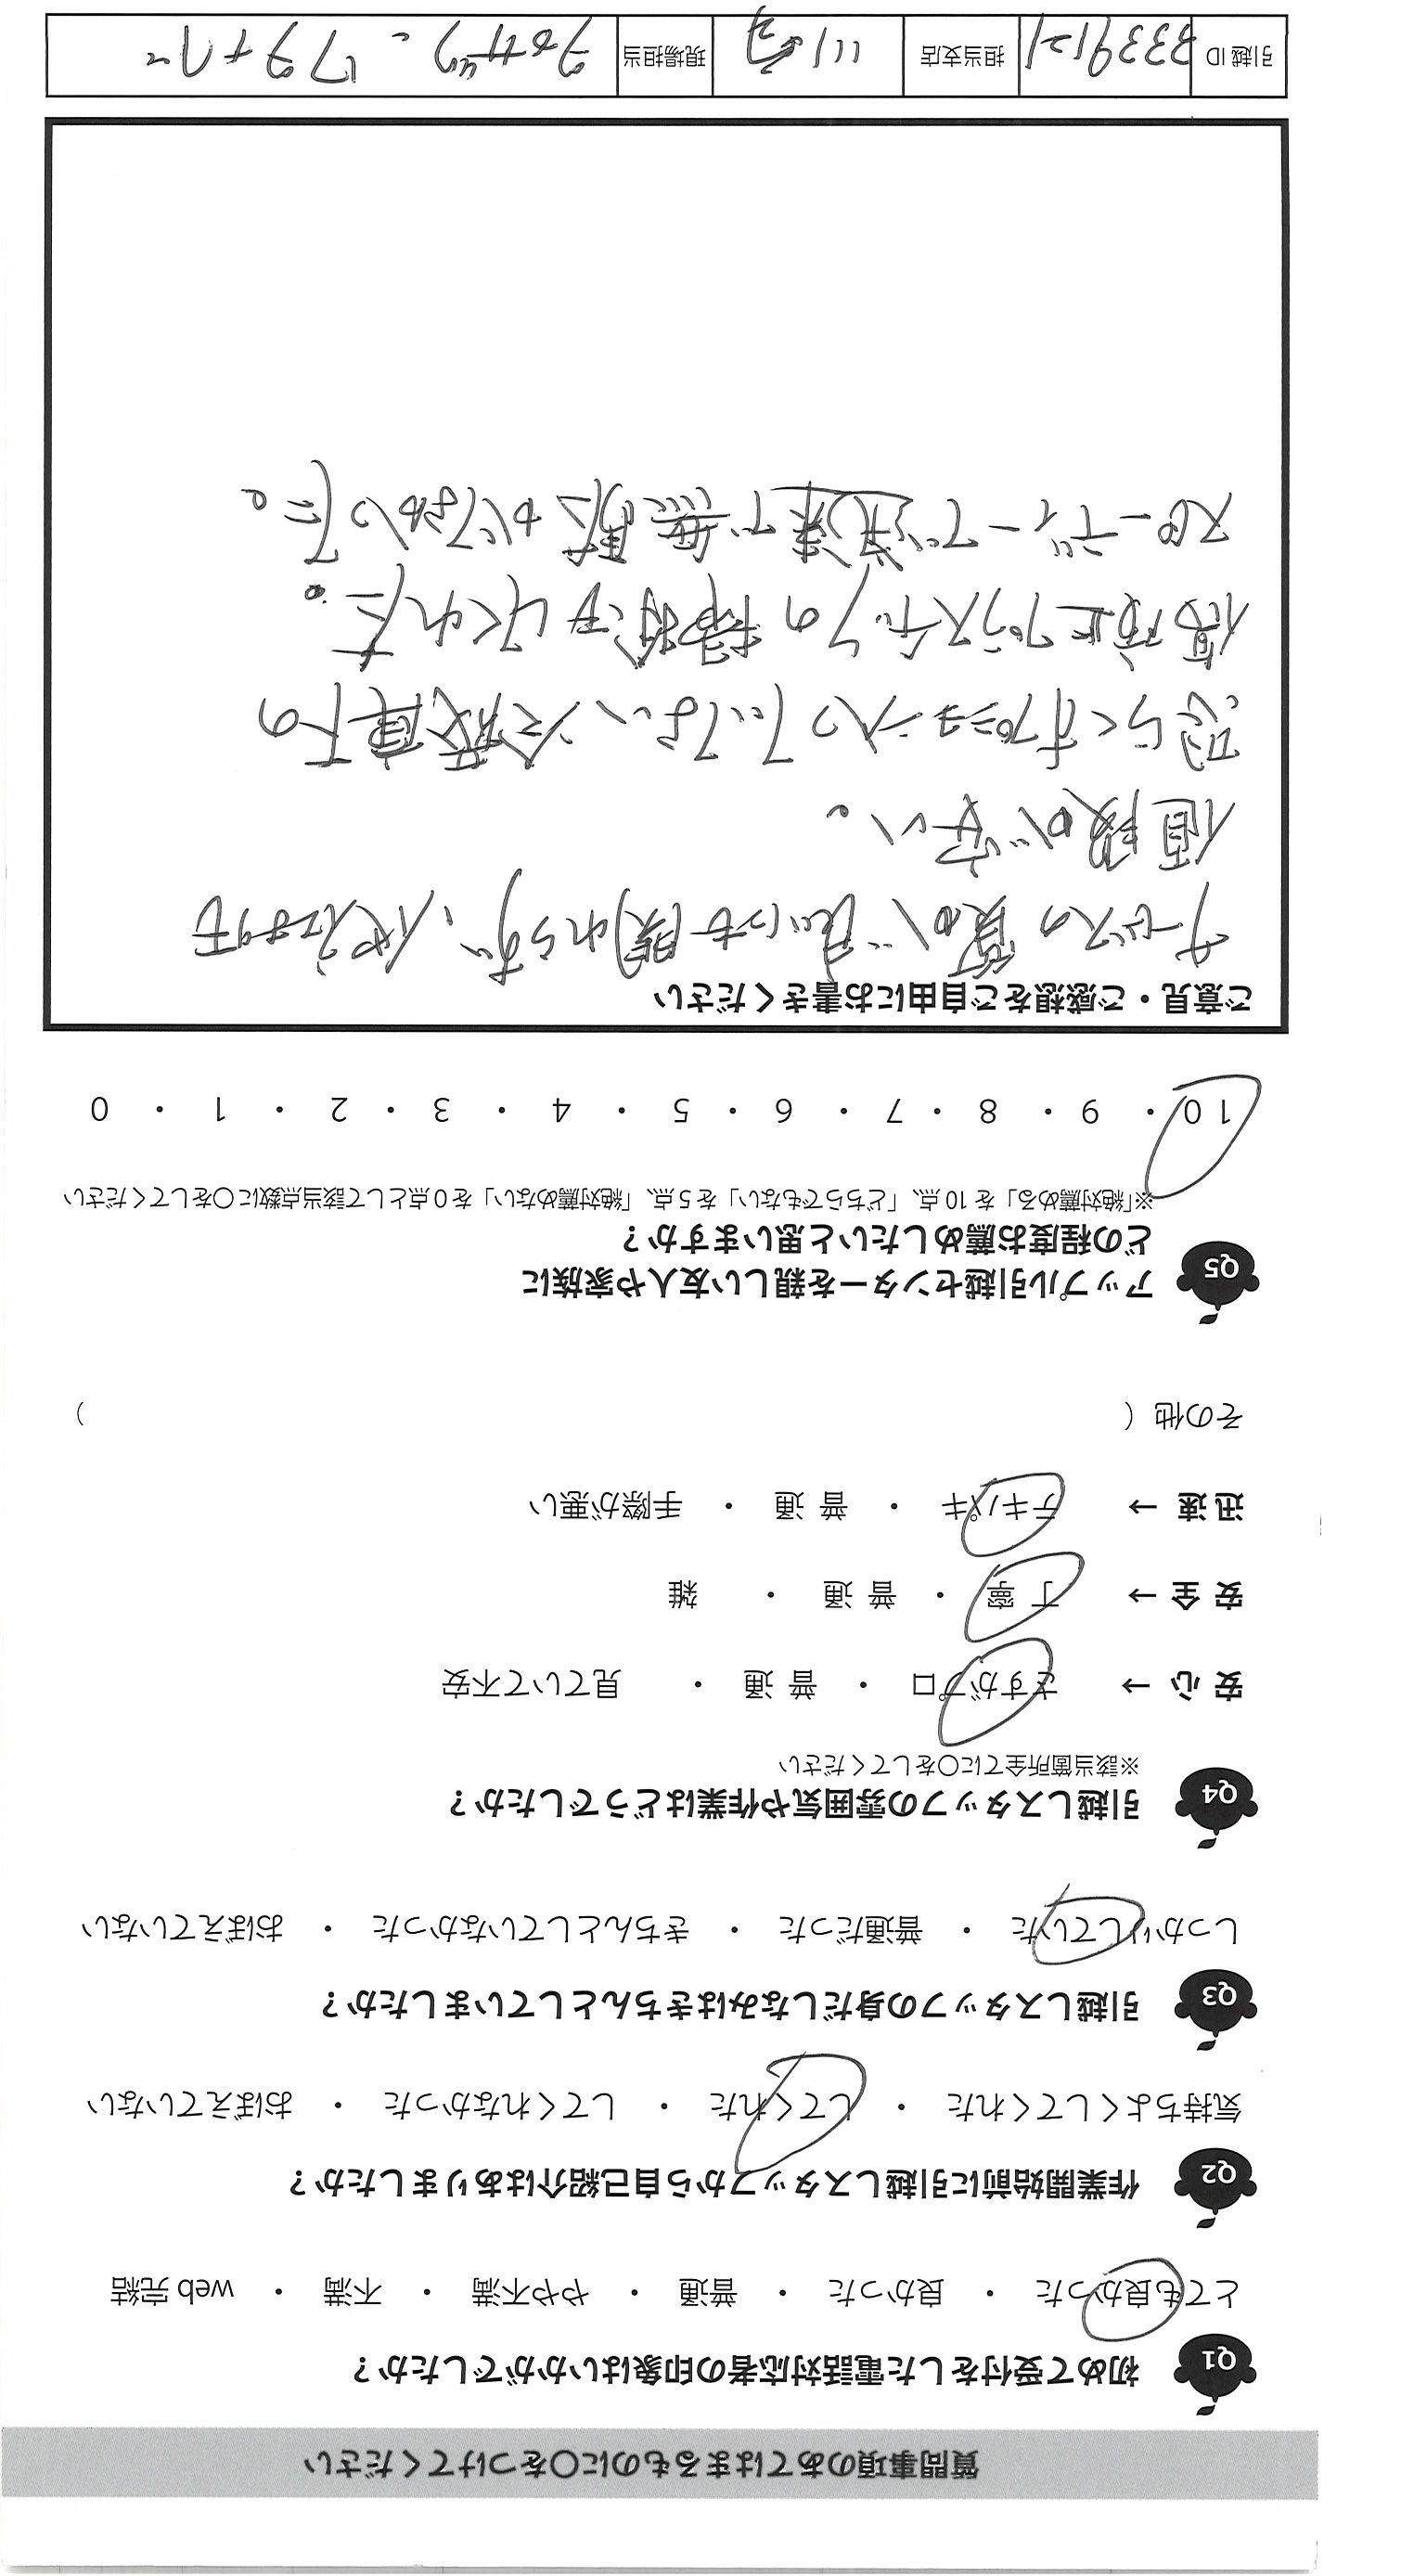 質問事項のあてはまるものに○をつけてください
Q1 初めて受付をした電話対応者の印象はいかがでしたか？
とても良かった ・ 良かった ・ 普通 ・ やや不満 ・ 不満 ・ web 完結
Q2 作業開始前に引越しスタッフから自己紹介はありましたか？
気持ちよくしてくれた ・ してくれた ・ してくれなかった ・ おぼえていない
Q3 引越しスタッフの身だしなみはきちんとしていましたか？
しっかりしていた ・ 普通だった ・ きちんとしていなかった ・ おぼえていない
Q4 引越しスタッフの雰囲気や作業はどうでしたか？
※該当箇所全てに○をしてください
安心 → さすがプロ ・ 普通 ・ 見ていて不安
安全 → 丁寧 ・ 普通 ・ 雑
迅速 → テキパキ ・ 普通 ・ 手際が悪い
その他（ ）
Q5 アップル引越センターを親しい友人や家族に
どの程度お薦めしたいと思いますか？
※「絶対薦める」を 10 点、「どちらでもない」を 5 点、「絶対薦めない」を 0 点として該当点数に○をしてください
10 ・ 9 ・ 8 ・ 7 ・ 6 ・ 5 ・ 4 ・ 3 ・ 2 ・ 1 ・ 0
ご意見・ご感想をご自由にお書きください
サービスの質が良いにも関わらず、他社よりも
値段が安い。
恐らくオプションに入っていない、冷蔵庫下の
傷防止プラスチックの移動もしてくれた。
スピーディーで迅速で無駄がなかった。
引越 ID 3339121 担当支店 川崎 現場担当 ワタナベ